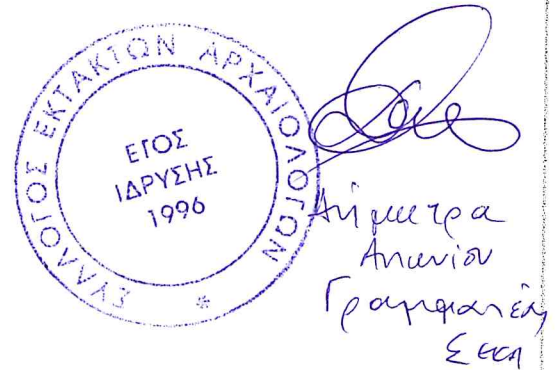 ΣΥΛΛΟΓΟΣ ΕΚΤΑΚΤΩΝ ΑΡΧΑΙΟΛΟΓΩΝ
ΕΤΟΣ
ΙΔΡΥΣΗΣ
1996
Δήμητρα
Αντωνίου
Γραμματέας
ΣΕΚΑ